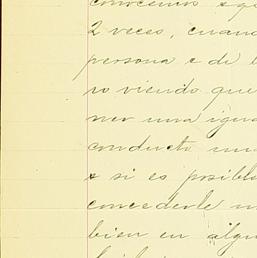 conocemos
2 veces, cuand
persona e de
ro viendo que
ner una igua
conducto
& si es posible
concederle
bien en algu